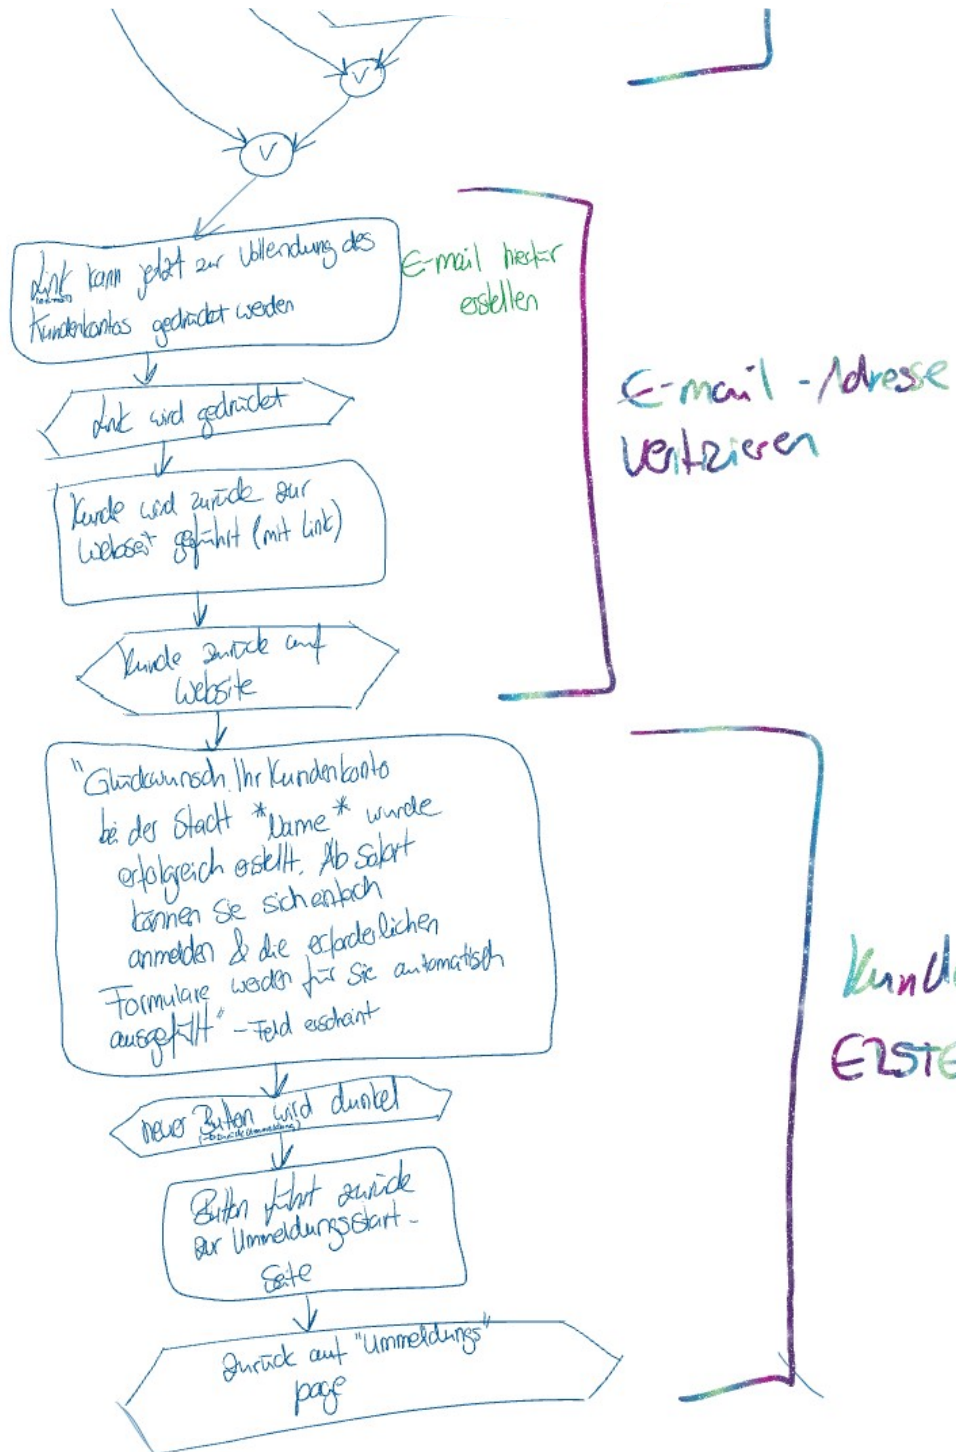 V
V
Link kann jetzt zur Vollendung des
Kundenkontos gedrückt werden
E-mail hierfür
erstellen
Link wird gedrückt
Kunde wird zurück zur
Webseit geführt (mit Link)
Kunde zurück auf
Website
E-mail-Adresse
Verifizieren
"Glückwunsch. Ihr Kundenkonto
bei der Stadt *Name* wurde
erfolgreich erstellt. Ab sofort
können Sie sich einfach
anmelden & die erforderlichen
Formulare werden für Sie automatisch
ausgefüllt" - Feld erscheint
neuer Button wird dunkel
Button führt zurück
zur Ummeldungsstart-
Seite
Zurück auf "Ummeldungs"
page
Kund
ERSTE